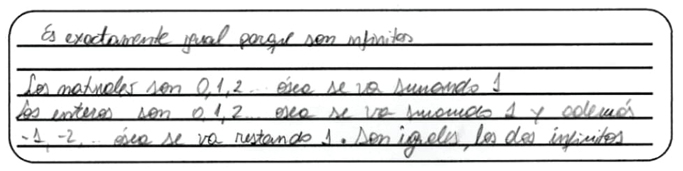 Es exactamente igual porque son infinitos
Los naturales son 0,1,2... ósea se va sumando 1
Los enteros son 0,1,2... osea se va sumando 1 y además
-1,-2,... ósea se va restando 1. Son iguales, los dos infinitos